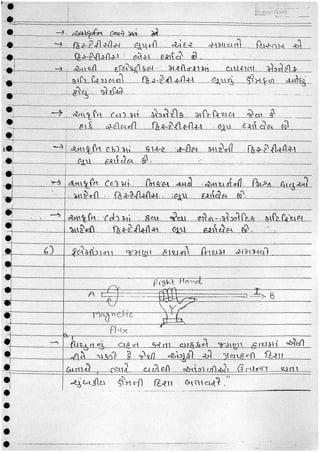 → આકૃતિ (a) માં એ
→ હિસ્ટરીસીસ લૂપની અંદર સમાવતો વિસ્તાર એ
હિસ્ટરીસીસ લોસ દર્શાવે છે.
→ આથી ઇલેક્ટ્રીકલ મશીનરીમાં વપરાતા મેગ્નેટીક
મટિરિયલનો હિસ્ટરીસીસ લૂપનું ક્ષેત્રફળ ઓછું
હોવું જોઈએ
→ આકૃતિ (a) માં મેગ્નેટીક મટિરિયલ જેવા કે
હાર્ડ સ્ટીલની હિસ્ટરીસીસ લૂપ દર્શાવેલ છે
→ આકૃતિ (b) માં કાસ્ટ સ્ટીલ માટેની હિસ્ટરીસીસ
લૂપ દર્શાવેલ છે.
→ આકૃતિ (c) માં નિકલ અને આયર્નની મિશ્ર ધાતુઓ
માટેની હિસ્ટરીસીસ લૂપ દર્શાવેલ છે.
→ આકૃતિ (d) માં હવા જેવા નોન-મેગ્નેટિક મટિરિયલ
માટેની હિસ્ટરીસીસ લૂપ દર્શાવેલ છે.
6) ફ્લેમીંગના જમણા હાથનો નિયમ સમજાવો.
Right Hand
A I B
Magnetic
Flux
→ વિદ્યુતનું વહન કરતા વાહકને જમણા હાથમાં એવી
રીતે પકડો કે જેથી અંગુઠો એ પ્રવાહની દિશા
બતાવે, ત્યારે વાળેલી આંગળીઓ ઉત્પન્ન થતા
ચુંબકીય ક્ષેત્રની દિશા બતાવશે."